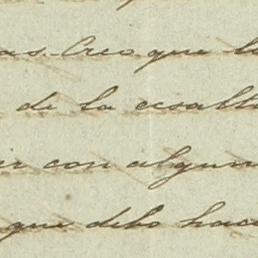 as. Creo que l
de la exalt
ir con algun
que debo hace